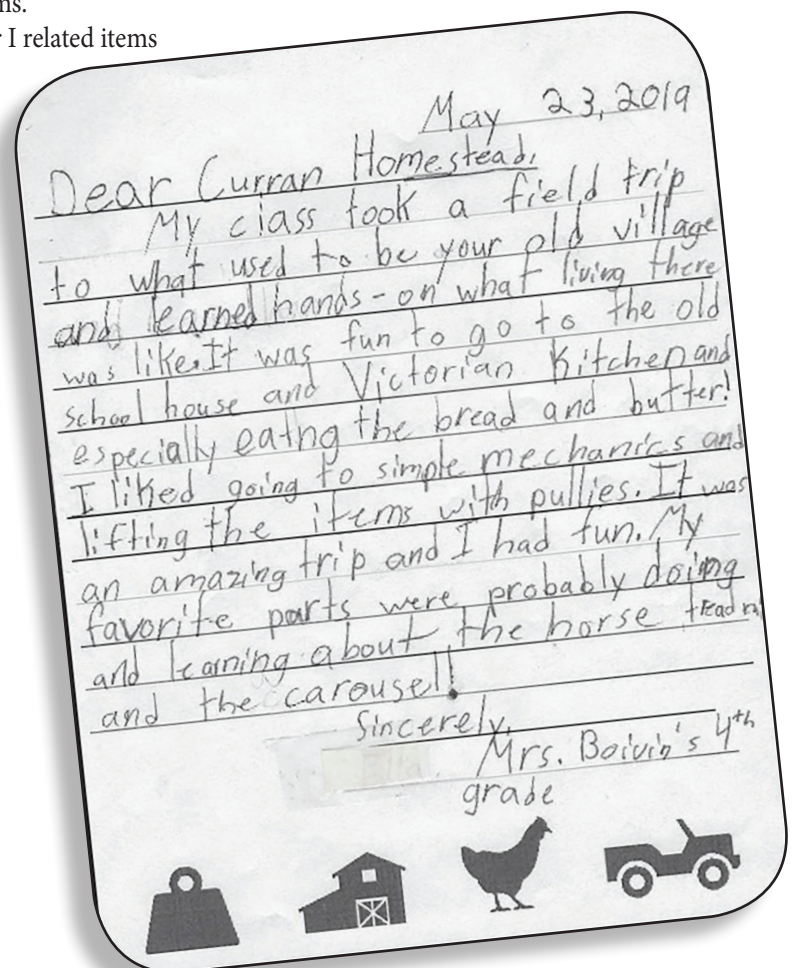 ns.
I related items
May 23, 2019
Dear Curran Homestead,
My class took a field trip
to what used to be your old village
and learned hands-on what living there
was like. It was fun to go to the old
school house and Victorian Kitchen and
especially eatng the bread and butter!
I liked going to simple mechanics and
lifting the items with pullies. It was
an amazing trip and I had fun. My
favorite parts were probably doing
and learning about the horse
and the carousel!
Sincerely,
Mrs. Boivin's 4th
grade